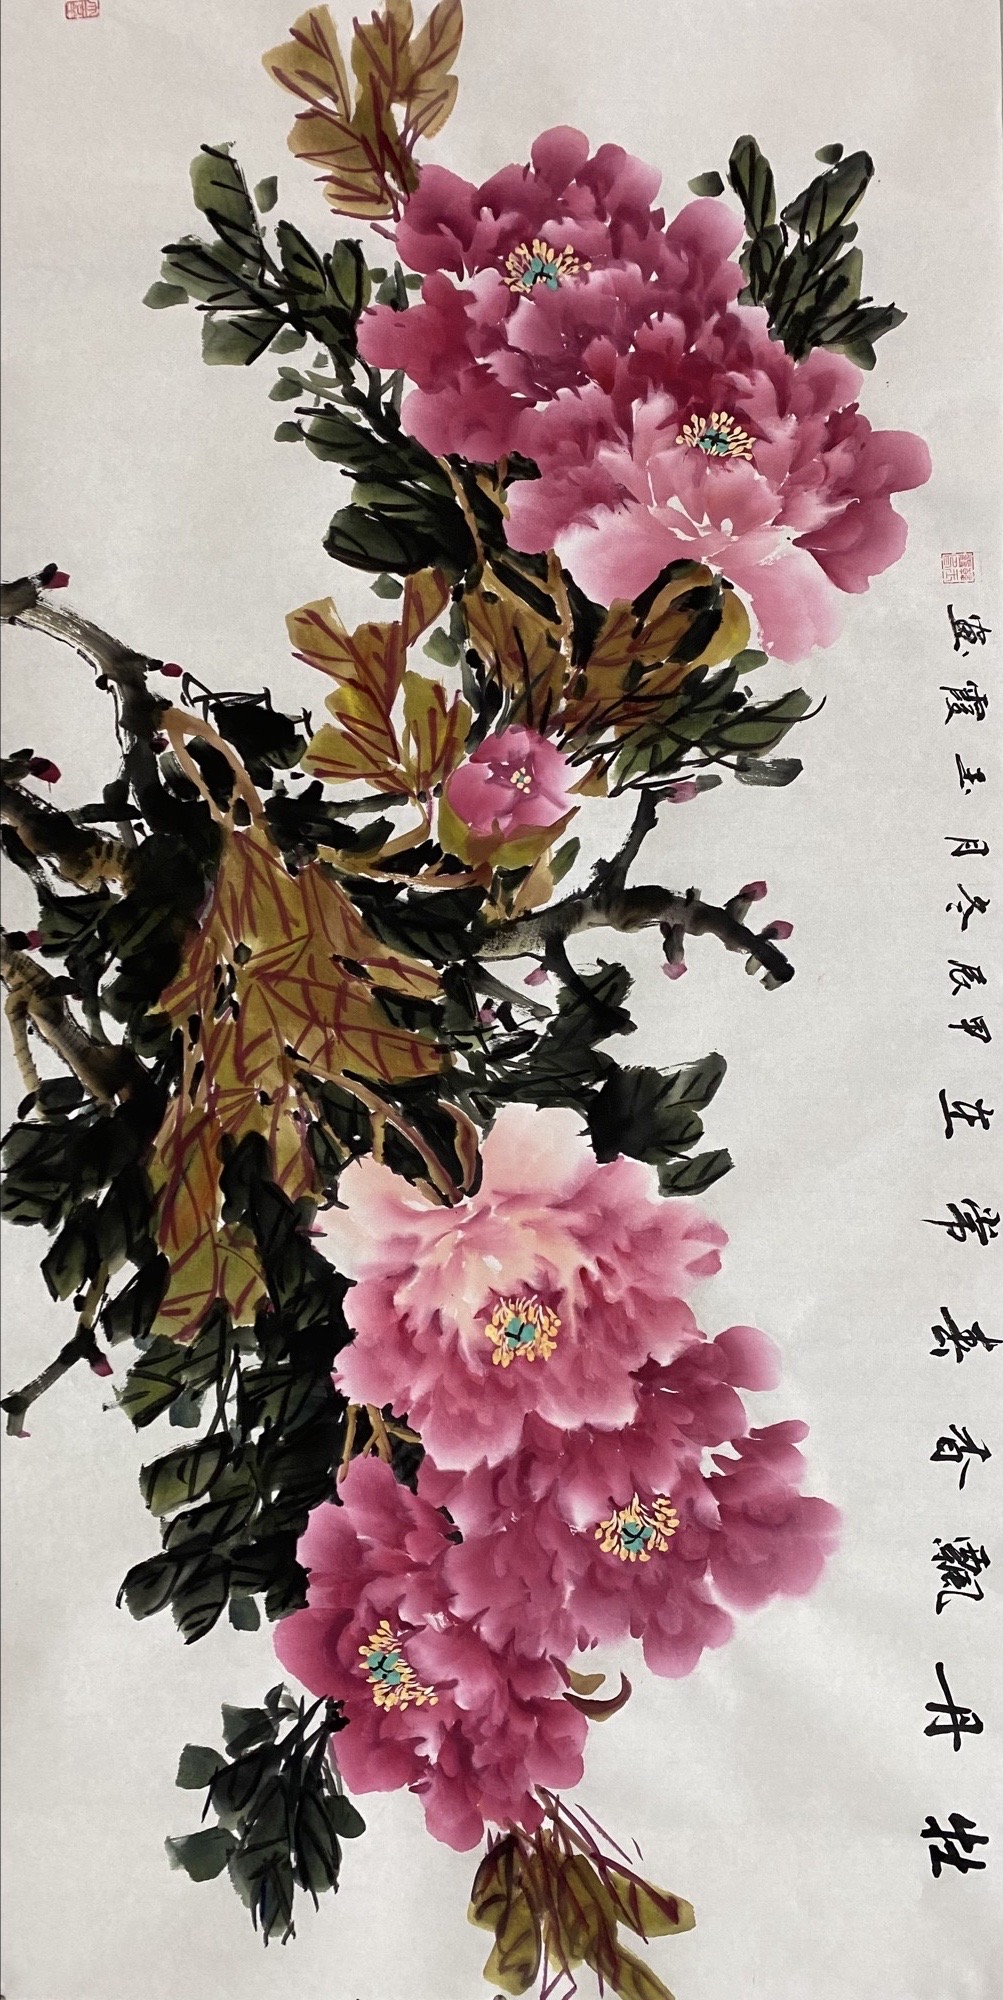 牡丹飄香春常在 甲辰冬月玉霞畫